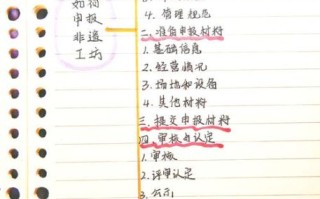 如何
申报
非遗
工坊
4. 管理规范
二. 准备申报材料
1. 基础信息
2. 经营情况
3. 场地和设备
4. 其他材料
三. 提交申报材料
四. 审核与认定
1. 审核
2. 评审认定
3. 公示